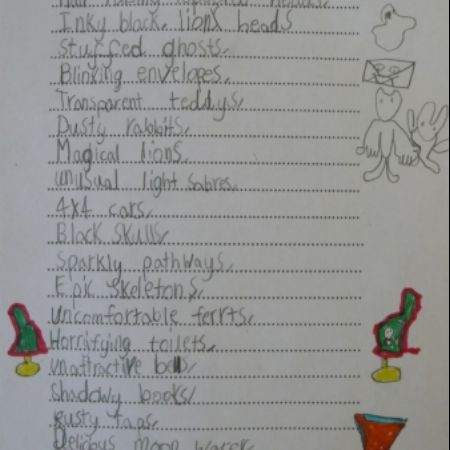 Inky black, lions heads
Stuffed ghosts,
Blinking envelopes,
Transparent teddys,
Dusty rabbits,
Magical lions,
unusual light sabres,
4x4 cars,
Black skulls,
Sparkly pathways,
Epic skeletons,
uncomfortable ferrts,
Horrifying toilets,
unattractive bells,
Shadowy books,
Rusty taps,
Delicious moon